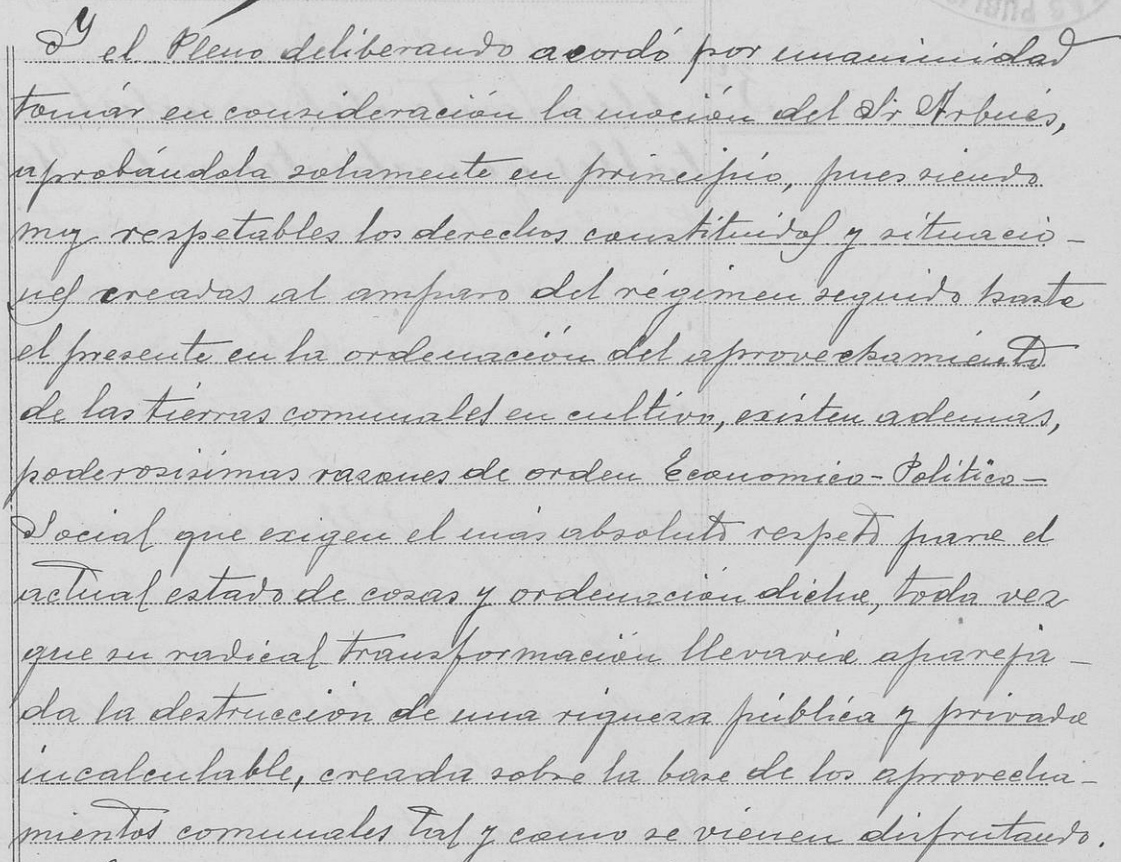 Y el Pleno deliberando acordó por unanimidad
tomár en consideración la moción del Sr Arbués,
aprobándola solamente en principio, pues siendo
my respetables los derechos constituidos y situacio-
nes creadas al amparo del régimen seguido hasta
el presente en la ordenación del aprovechamiento
de las tierras comunales en cultivo, existen además,
poderosisimas razones de orden Economico-Politico-
Social que exigen el más absoluto respeto para el
actual estado de cosas y ordenación dicha, toda vez
que su radical transformación llevaria apareja-
da la destrucción de una riqueza pública y privada
incalculable, creada sobre la base de los aprovecha-
mientos comunales tal y como se vienen disfrutando.